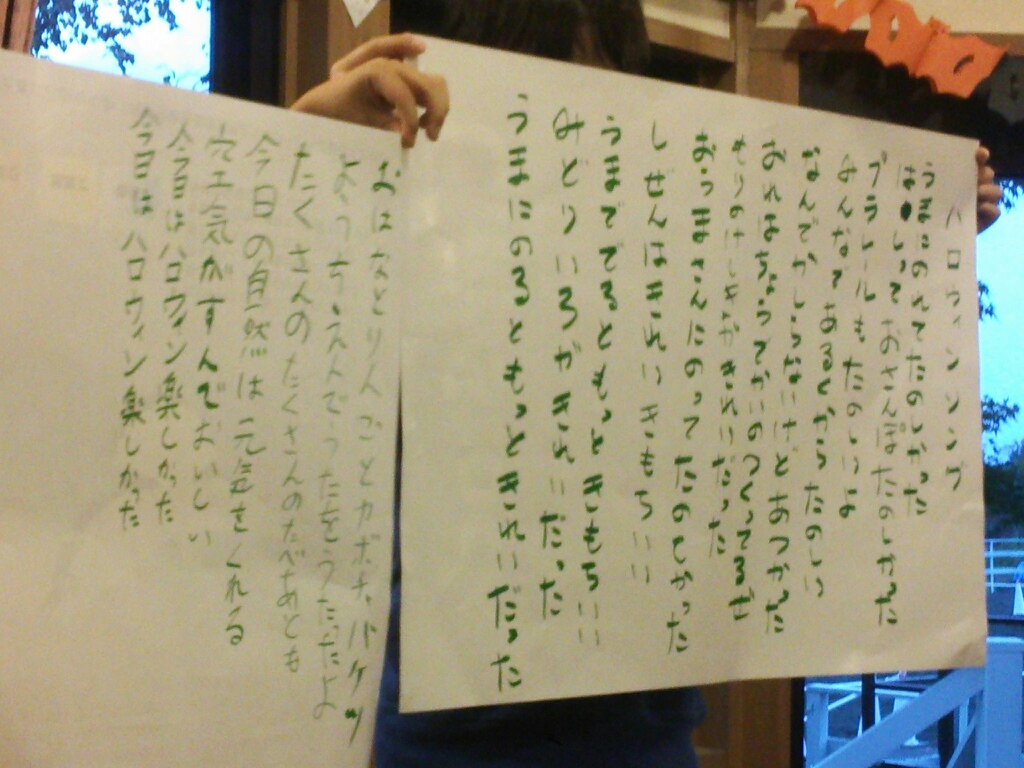 ハロウィンソング
うまにのれてたのしかった
はしっておさんぽたのしかった
プラレールもたのしいよ
みんなであるとからたのしい
なんでかしらないけどあつかった
おれはちょうでかいのつくってるぜ
もりのけしきがきれいだった
おっまさんにのってたのしかった
しぜんはきれいきもちいい
うまででるともっときもちいい
みどりいろがきれいだった
うまにのるともっときれいだった
おはなとりんごとカボチャバケツ
ようちえんでうたをうたったよ
たくさんのたくさんのたべものとも
今日の自然は元気をくれる
空気がすんでおいしい
今日はハロウィン楽しかった
今日はハロウィン楽しかった